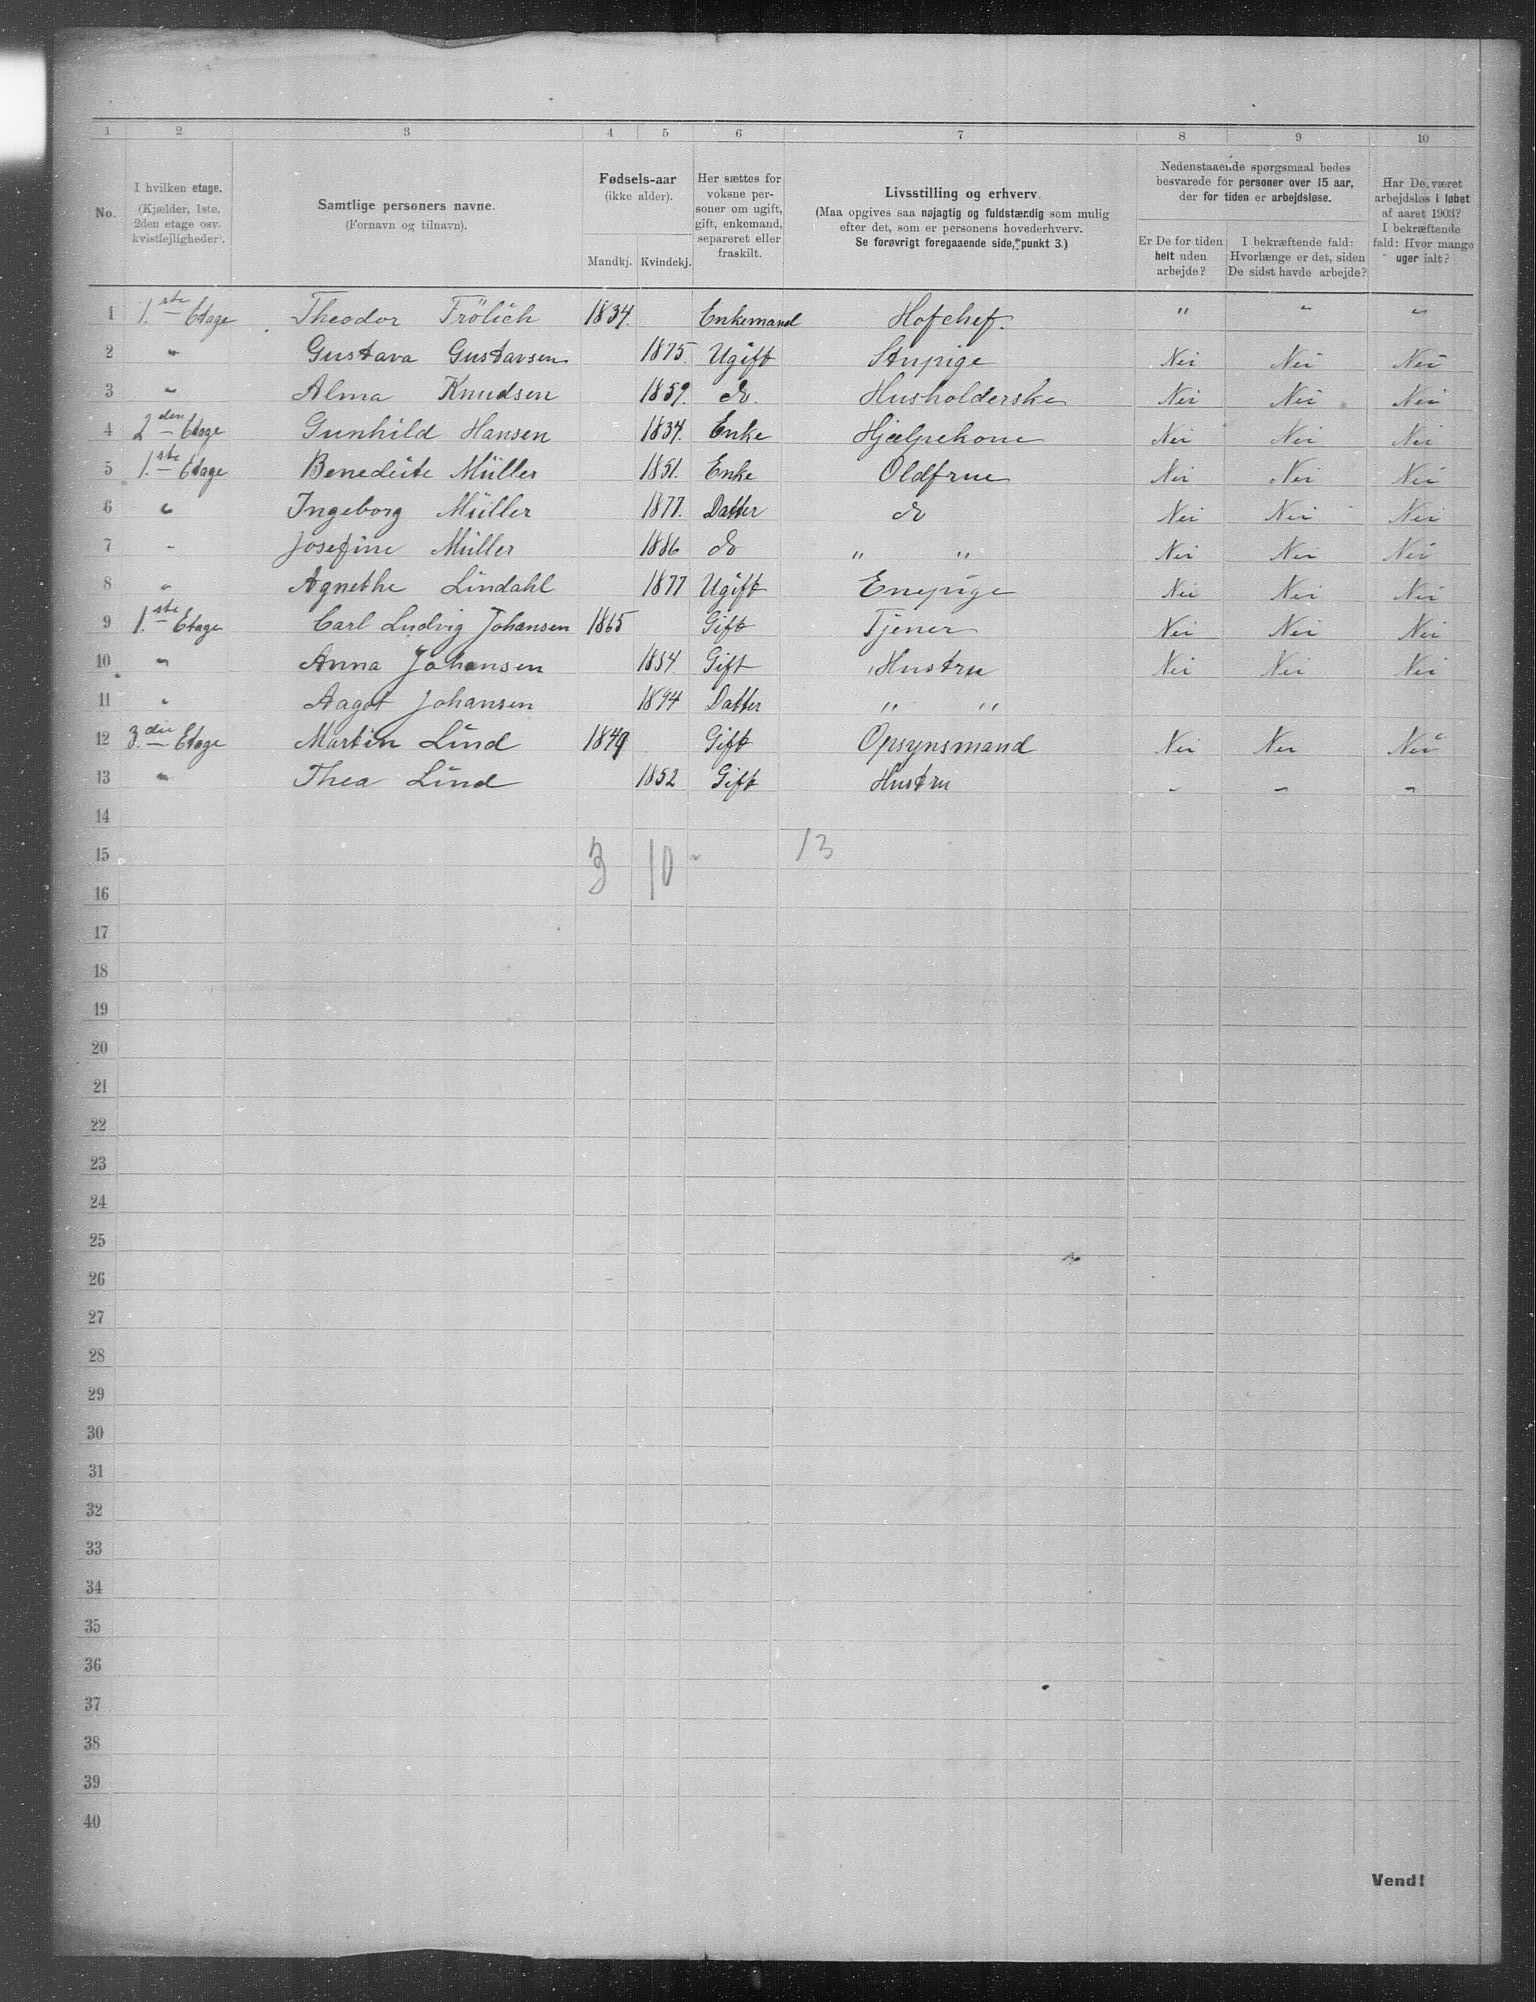 1 2 3 4 5 6 7 8 9 10
No.
I hvilken etage.
(Kjælder, 1ste,
2den etage osv.
kvistlejligheder).
Samtlige personers navne.
(Fornavn og tilnavn).
Fødsels-aar
(ikke alder).
Mandkj. Kvindekj.
Her sættes for
voksne per-
soner om ugift,
gift, enkemand,
separeret eller
fraskilt.
Livsstilling og erhverv.
(Maa opgives saa nøjagtig og fuldstændig som mulig
efter det, som er personens hovederhverv.
Se forøvrigt foregaaende side, punkt 3.)
Nedenstaaende spørgsmaal bedes
besvarede for personer over 15 aar,
der for tiden er arbejdsløse.
Er De for tiden
helt uden
arbejde?
I bekræftende fald:
Hvorlænge er det, siden
De sidst havde arbejde?
Har De været
arbejdsløs i løbet
af aaret 1903?
I bekræftende
fald: Hvor mange
uger ialt?
1 1.ste Etage Theodor Frölich 1834. Enkemand Hofchef. " " "
2 " Gustava Gustavsen 1875. Ugift Stupige Nei Nei Nei
3 " Alma Knudsen 1859. do. Husholderske Nei Nei Nei
4 2den Etage Gunhild Hansen 1834. Enke Hjælpekone Nei Nei Nei
5 1.ste Etage Benedicte Müller 1851. Enke Oldfrue Nei Nei Nei
6 " Ingeborg Müller 1877. Datter do Nei Nei Nei
7 " Josefine Müller 1886 do " " Nei Nei Nei
8 " Agnethe Lindahl 1877 Ugift Enepige Nei Nei Nei
9 1.ste Etage Carl Ludvig Johansen 1865 Gift Tjener Nei Nei Nei
10 " Anna Johansen 1854. Gift Hustru Nei Nei Nei
11 " Aagot Johansen 1894 Datter " "
12 3.die Etage Martin Lind 1849 Gift Opsynsmand Nei Nei Nei
13 " Thea Lind 1852 Gift Hustru " " "
14
15 3 10 13
16
17
18
19
20
21
22
23
24
25
26
27
28
29
30
31
32
33
34
35
36
37
38
39
40
Vend!